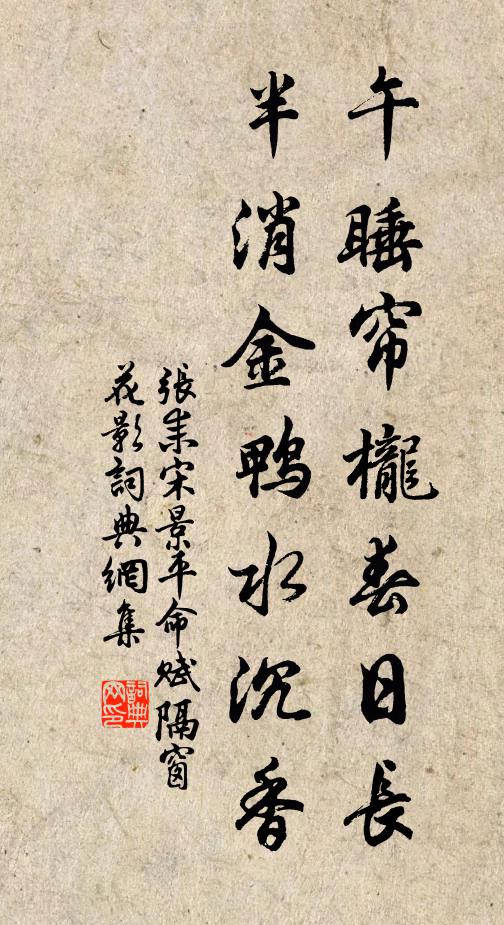 午睡帘櫳春日長
半消金鴨水沉香
張耒宋景平命賦隔窗
花影詞典網集
詞典網印